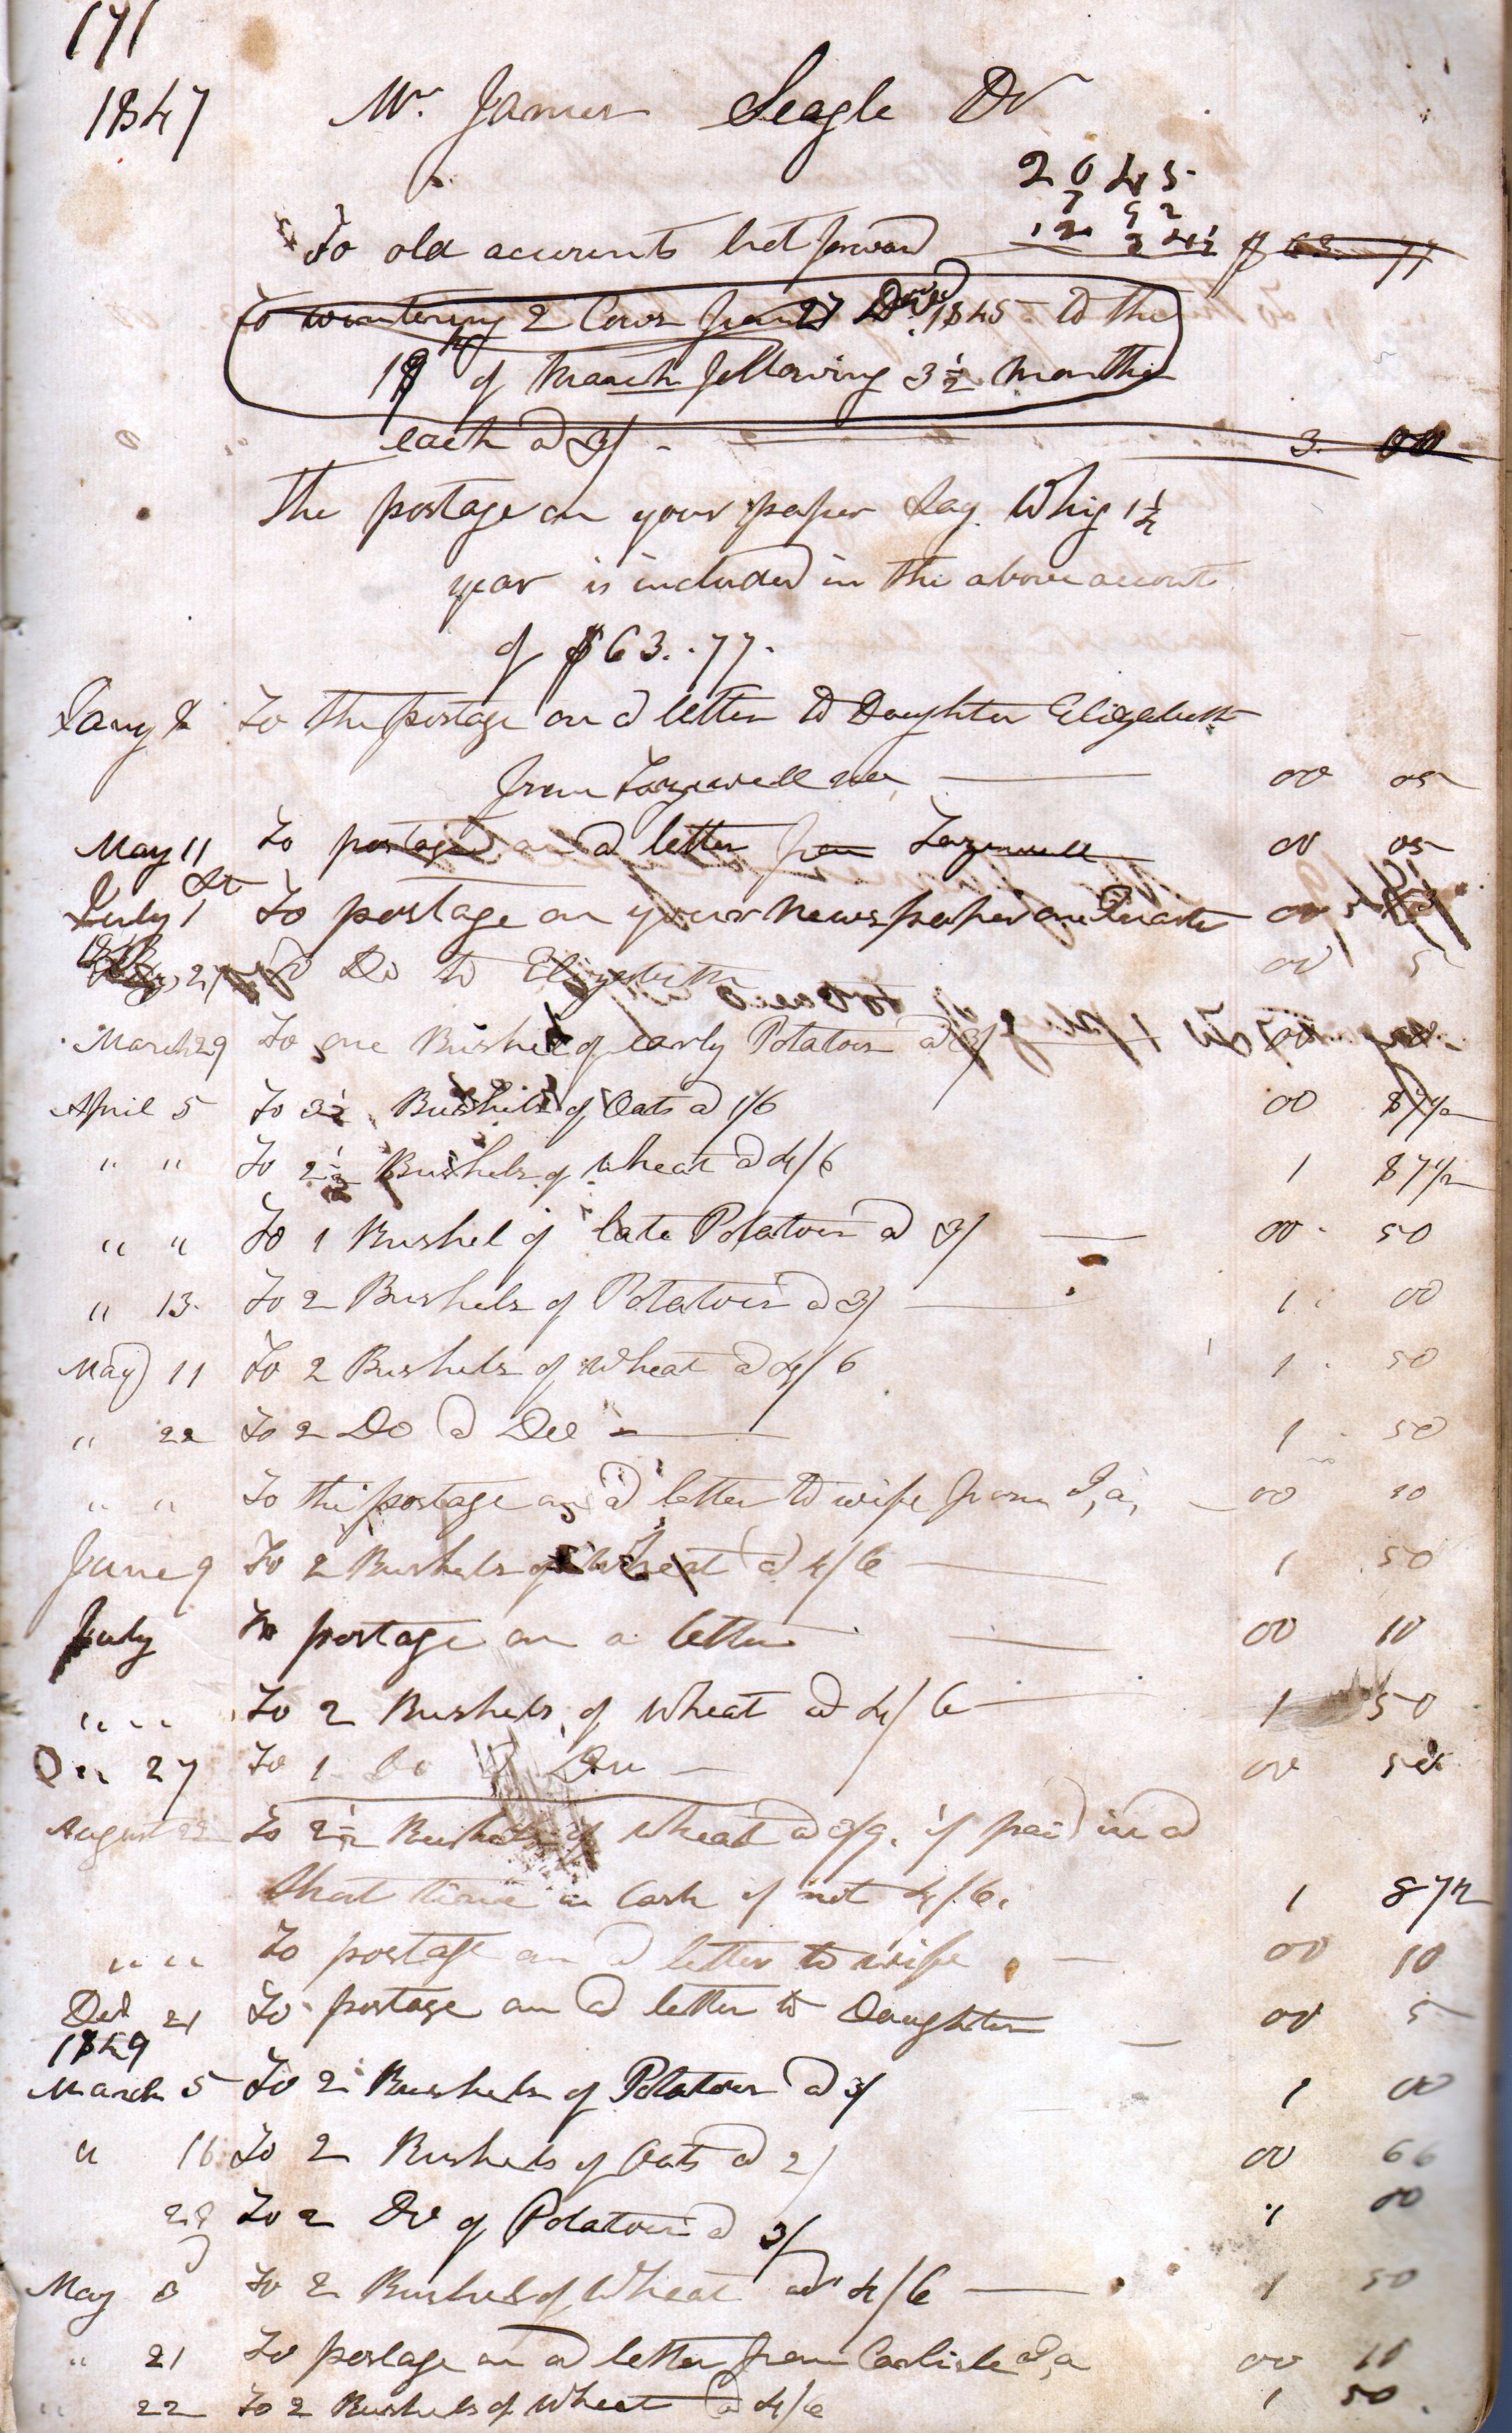 171
1847 Mr. James Seagle Dr
2 0 45
7 92
12 2
To old accounts bot forward $ 63. 77
To wintering 2 Cows from 27 1845 to the
19th of March following 3½ months
each a 3/ - 3. 00
The postage on your paper say Whig 1¼
year is included in the above account
of $63..77.
Jany 8 To the postage on a letter to Daughter Elizabeth
from Tazewell 00 05
May 11 To postage on a letter from Tazewell 00 05
July 1st To postage on your Newspaper one Quarter 00
1848
27 Do to Elizabeth 00 5
March 29 To one Bushel of early Potatoes a 3/ 00
April 5 To 3½ Bushels of Oats a 1/6 00 87½
" " To 2½ Bushels of wheat a 4/6 1 87½
" " To 1 Bushel of late Potatoes a 3/ 00 50
" 13. To 2 Bushels of Potatoes a 3/ 1. 00
May 11 To 2 Bushels of Wheat a 4/6 1. 50
" 22 To 2 Do a Do 1. 50
" " To the postage on a letter to wife from P,a, 00 10
June 9 To 2 Bushels of Wheat a 4/6 1 50
July To postage on a letter 00 10
" " To 2 Bushels of Wheat a 4/6 1 50
27 To 1 Do 00
August 22 To 2½ Bushels of wheat a 3/9. if paid in a
short time in Cash if not 4/6. 1 87½
" " To postage on a letter to wife 00 10
Dec 21 To postage on a letter to Daughter 00 5
1849
March 5 To 2 Bushels of Potatoes a 3/ 1 00
" 16 To 2 Bushels of Oats a 2/ 00 66
28 To 2 Do of Potatoes a 3/ 1 00
May 8 To 2 Bushels of Wheat a 4/6 1 50
" 21 To postage on a letter from Carlisle P,a 00 10
" 22 To 2 Bushels of Wheat a 4/6 1 50